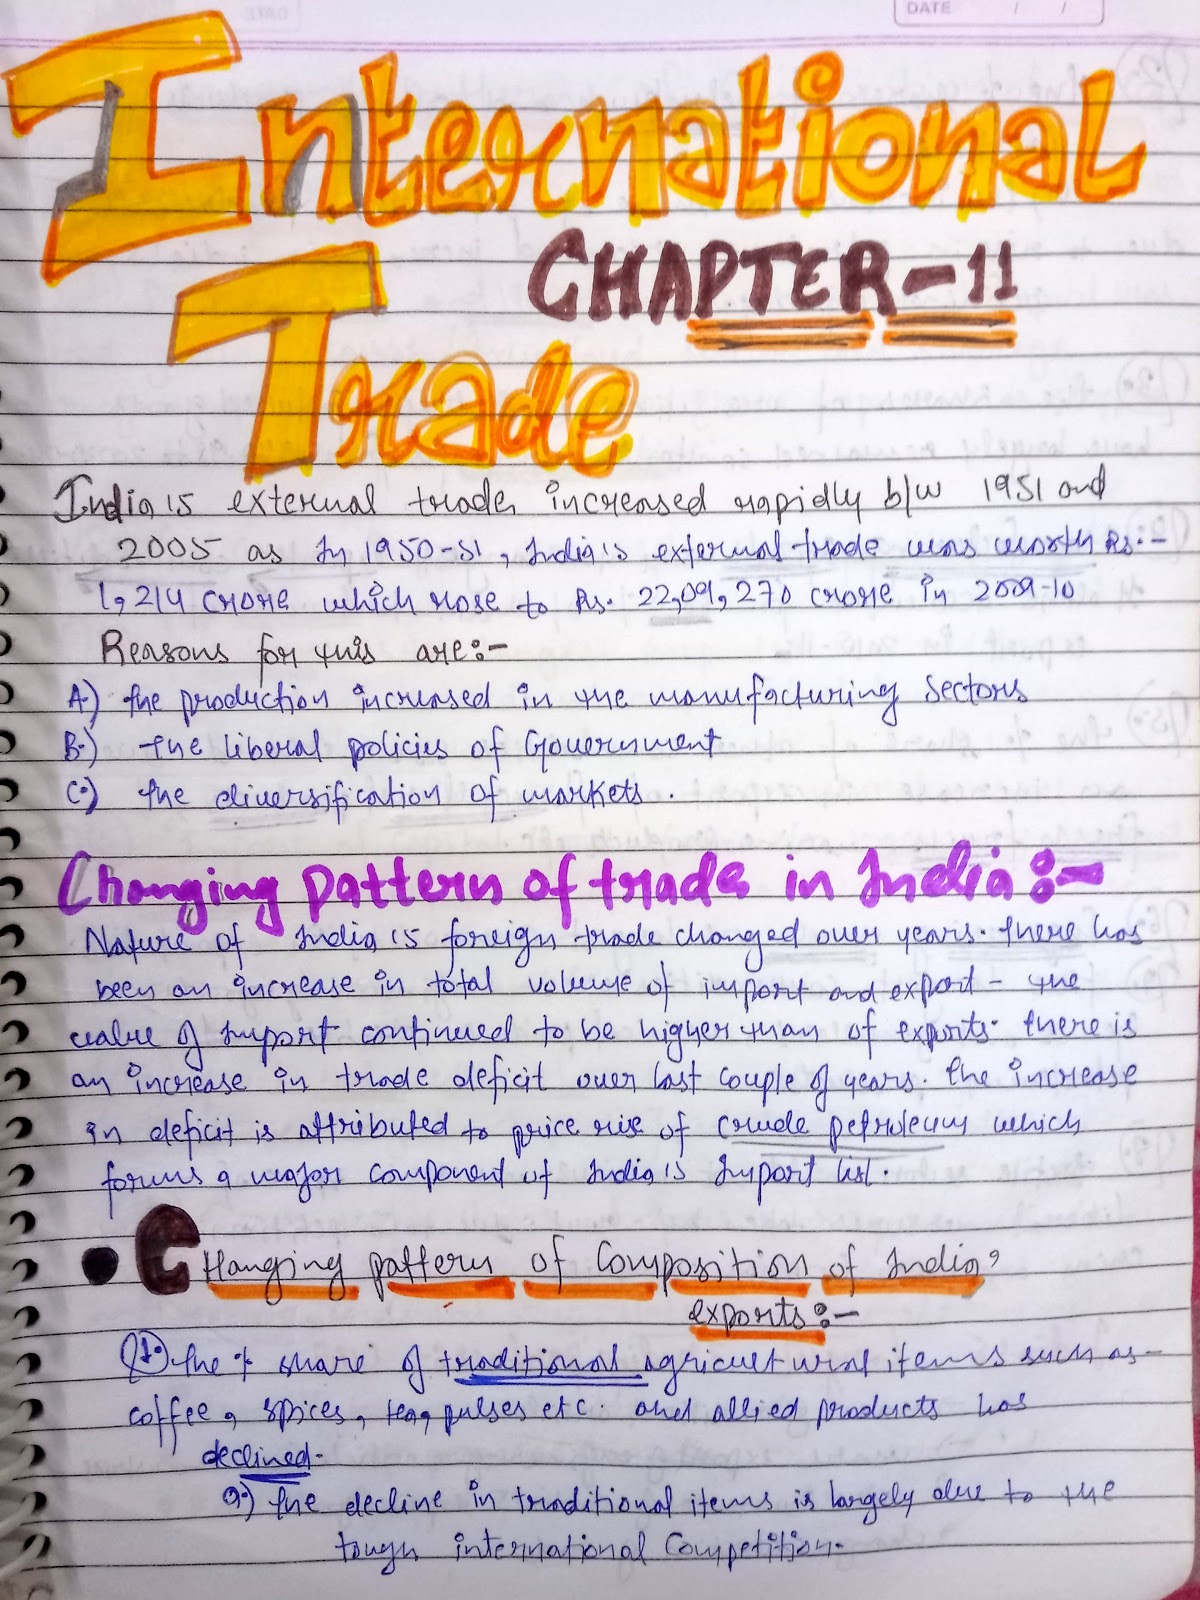 DATE / /
International
CHAPTER-11
Trade
India's external trade increased rapidly b/w 1951 and
2005 as In 1950-51, India's external trade was worth Rs:-
1,214 crore which rose to Rs. 22,09,270 crore in 2009-10
Reasons for this are:-
A.) the production increased in the manufacturing sectors
B.) the liberal policies of Government
C.) the diversification of markets.
Changing pattern of trade in India:-
Nature of India's foreign trade changed over years. there has
been an increase in total volume of import and export - the
value of Import continued to be higher than of exports. there is
an increase in trade deficit over last couple of years. the increase
in deficit is attributed to price rise of crude petroleum which
forms a major component of India's Import list.
• CHanging pattern of Composition of India's
exports:-
Q1. the % share of traditional agricultural items such as-
coffee, spices, tea, pulses etc. and allied products has
declined.
a.) the decline in traditional items is largely due to the
tough international Competition.